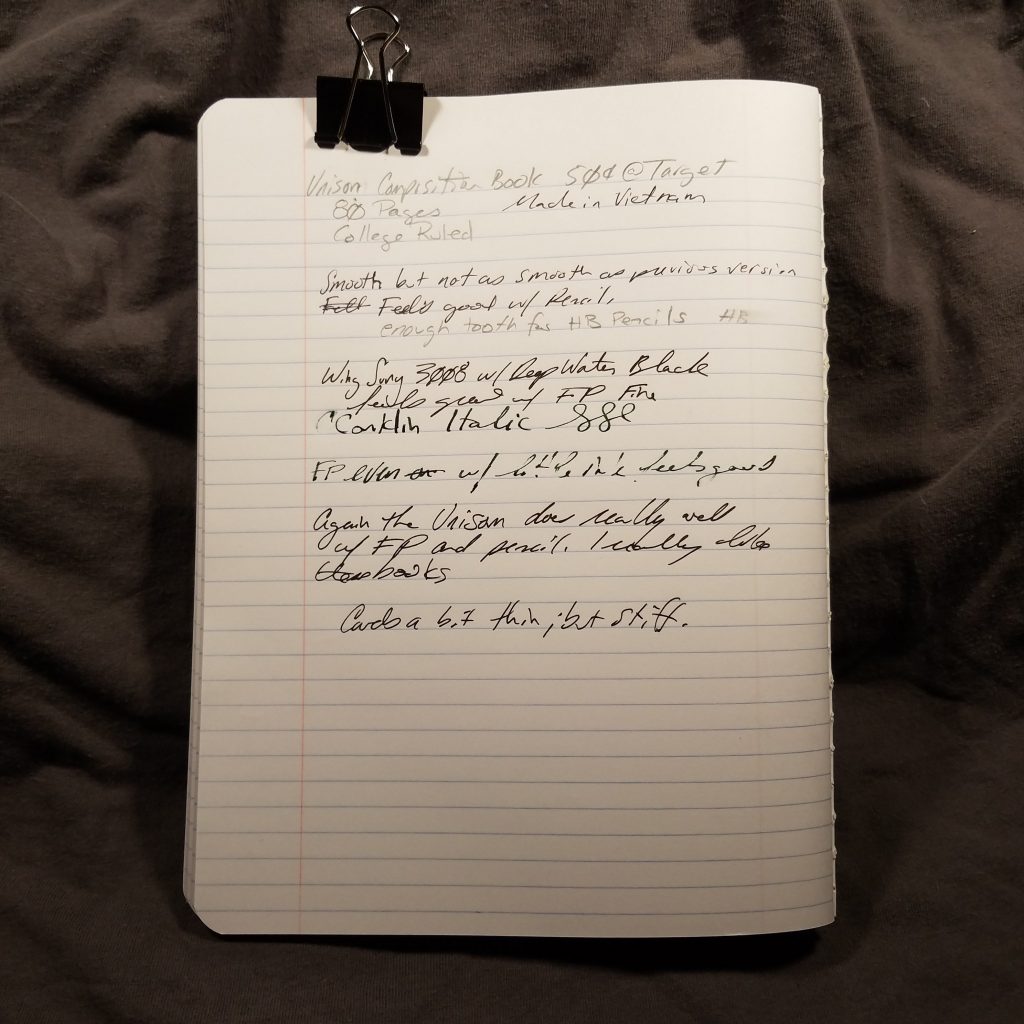 Unison Composition Book 50¢ @ Target
80 Pages Made in Vietnam
College Ruled
Smooth but not as smooth as previous version
Felt Feels good w/ Pencil,
enough tooth for HB Pencils HB
Wing Sung 3008 w/ Deep Water Black
feels good w/ FP Fine
Conklin Italic
FP even on w/ little ink feels good
Again the Unison does really well
w/ FP and pencil. I really like
these books
Cards a bit thin, but stiff.